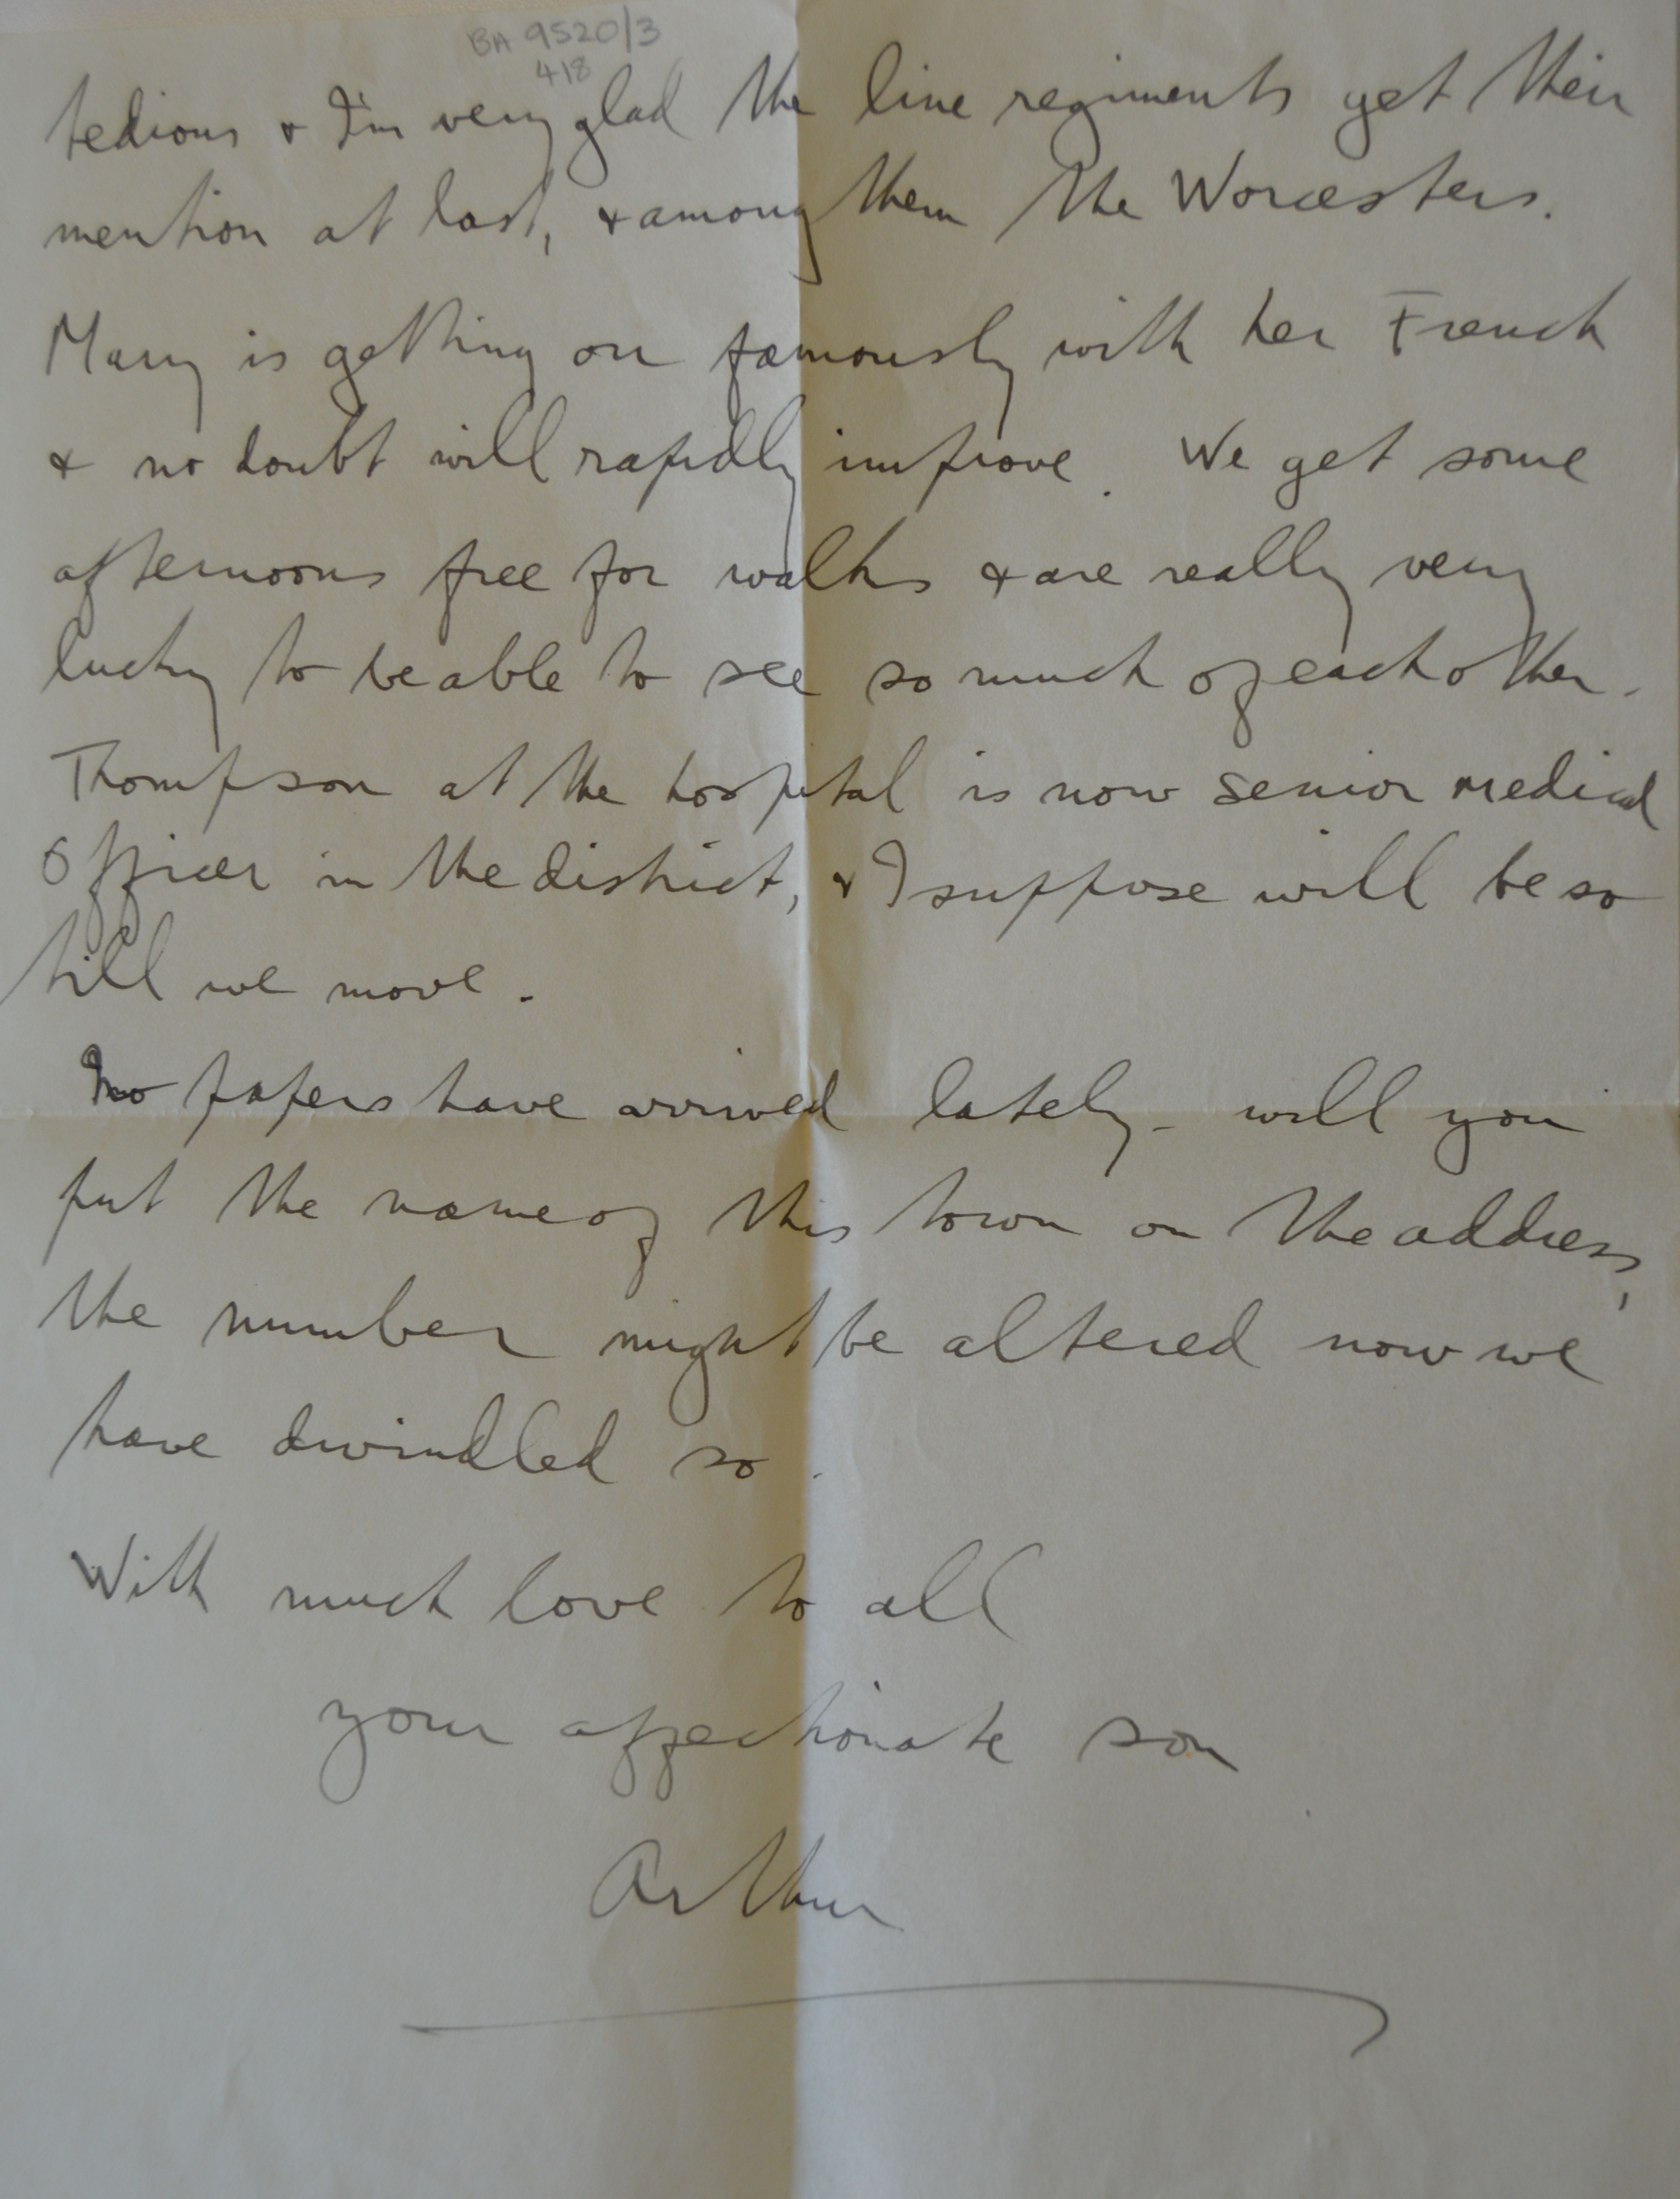 BA 9520/3
418
tedious & I'm very glad the line regiments get their
mention at last, & among them the Worcesters.
Mary is getting on famously with her French
& no doubt will rapidly improve. We get some
afternoons free for walks & are really very
lucky to be able to see so much of each other.
Thompson at the hospital is now senior medical
officer in the district, & I suppose will be so
till we move.
No papers have arrived lately - will you
put the name of this town on the address,
the number might be altered now we
have dwindled so.
With much love to all
your affectionate son
Arthur